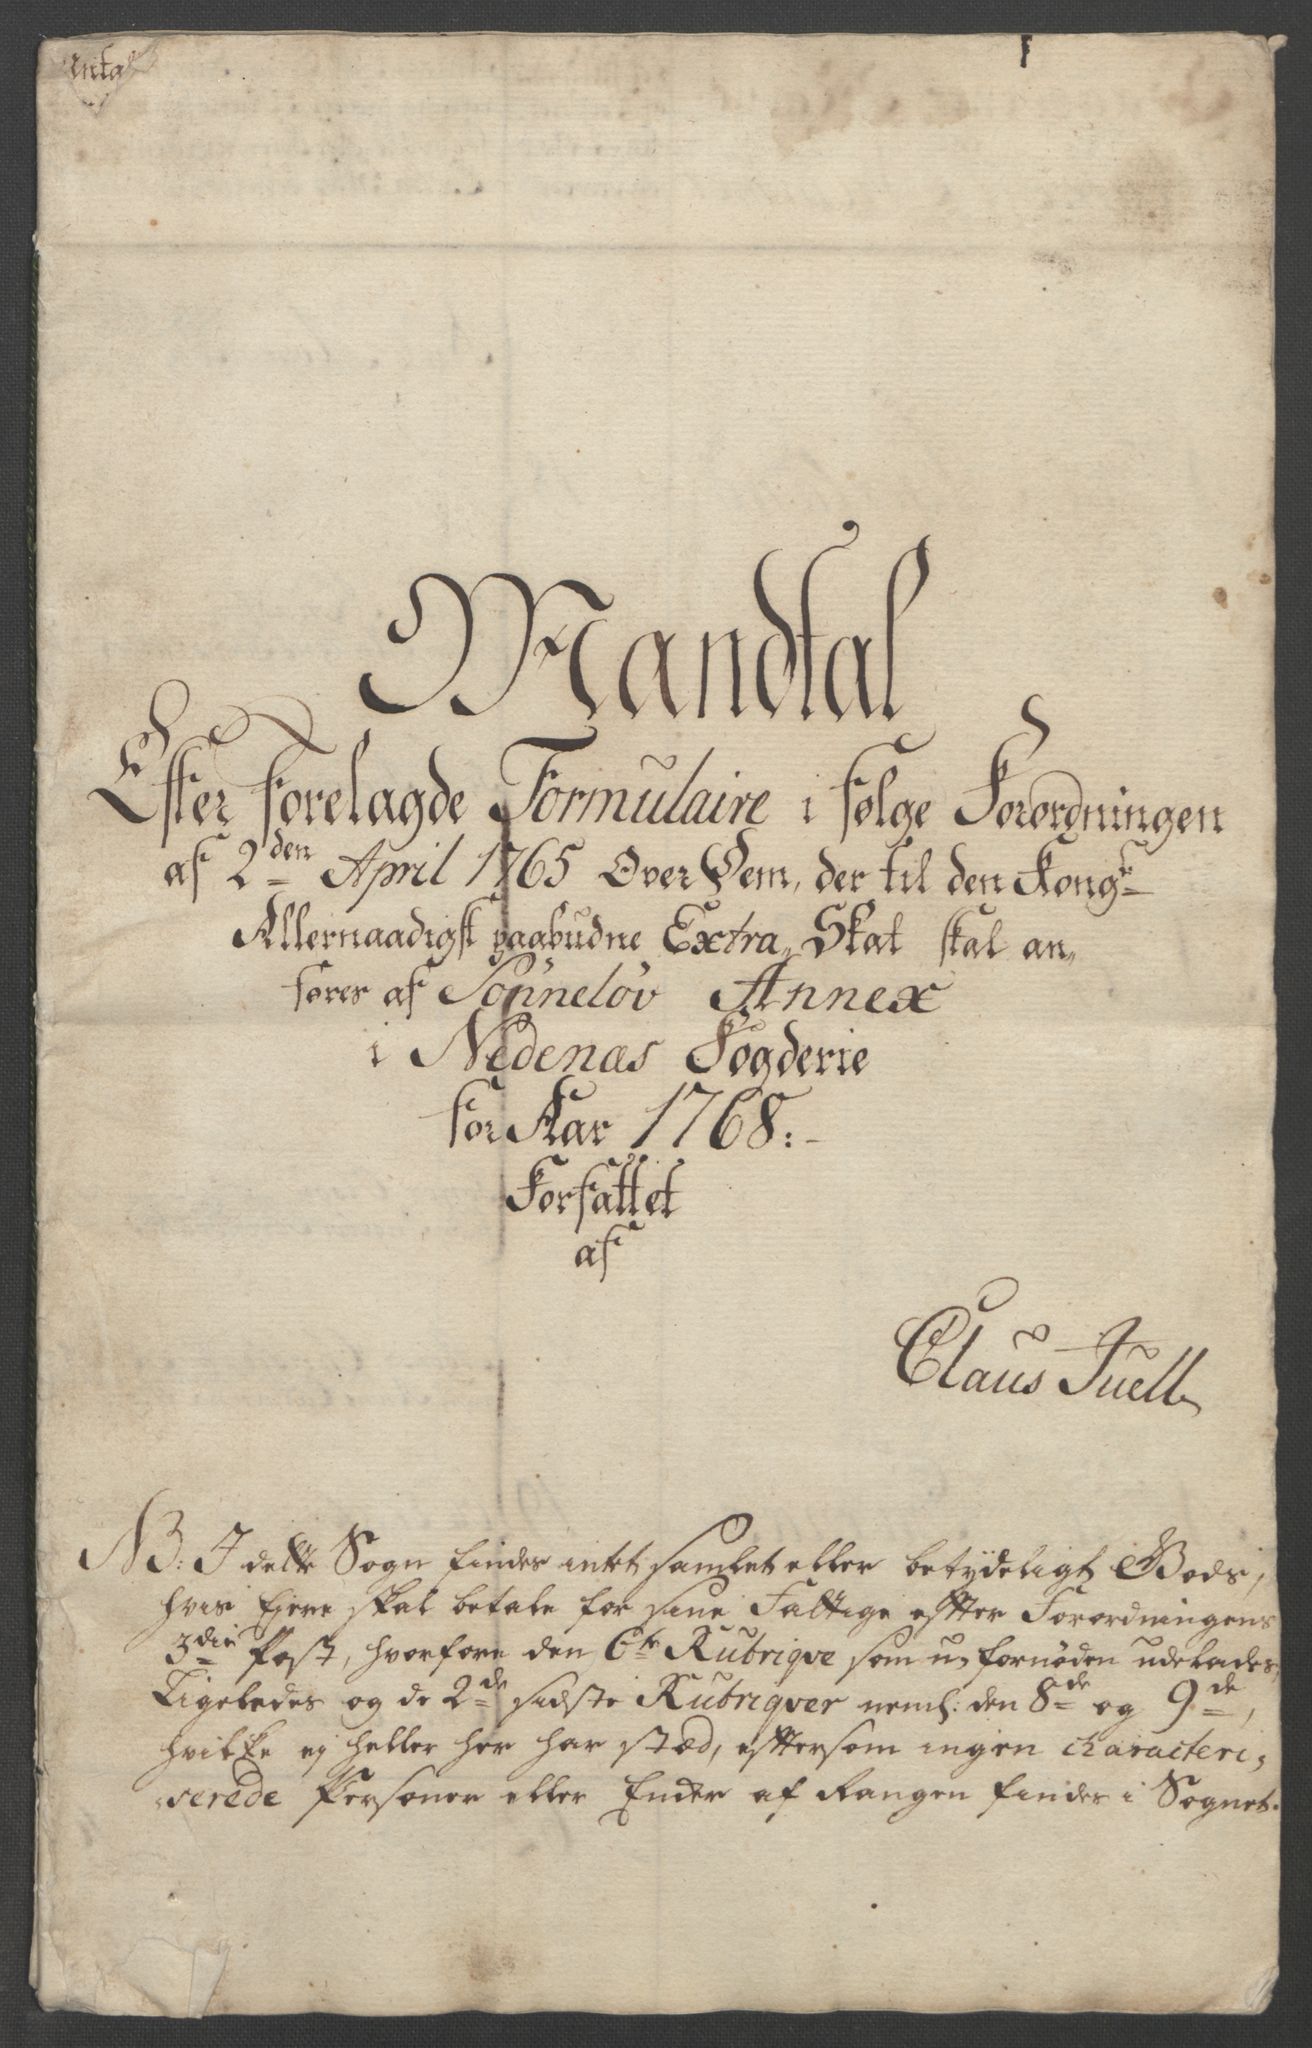 Mandtal
Efter forelagde Formulaire i følge Forordningen
af 2den April 1765 Over Dem, der til den Kongl
Allernaadigst paabudne Extra-Skat skal an-
føres af Sønneløv Annex
i Nedenæs Fogderie
for Aar 1768:-
Forfattet
af
Claus Juell
NB: I dette Sogn findes intet samlet eller betydeligt Gods,
hvis Ejere skal betale for sine Fattige efter Forordningens
3die Post, hvorfore den 6te Rubrique som u-fornøden udelades,
Ligeledes og de 2de sidste Rubriqver neml: den 8de og 9de,
hvilke ej heller her har stæd, eftersom ingen characteri-
serede Personer eller Enker af Rangen findes i Sognet.